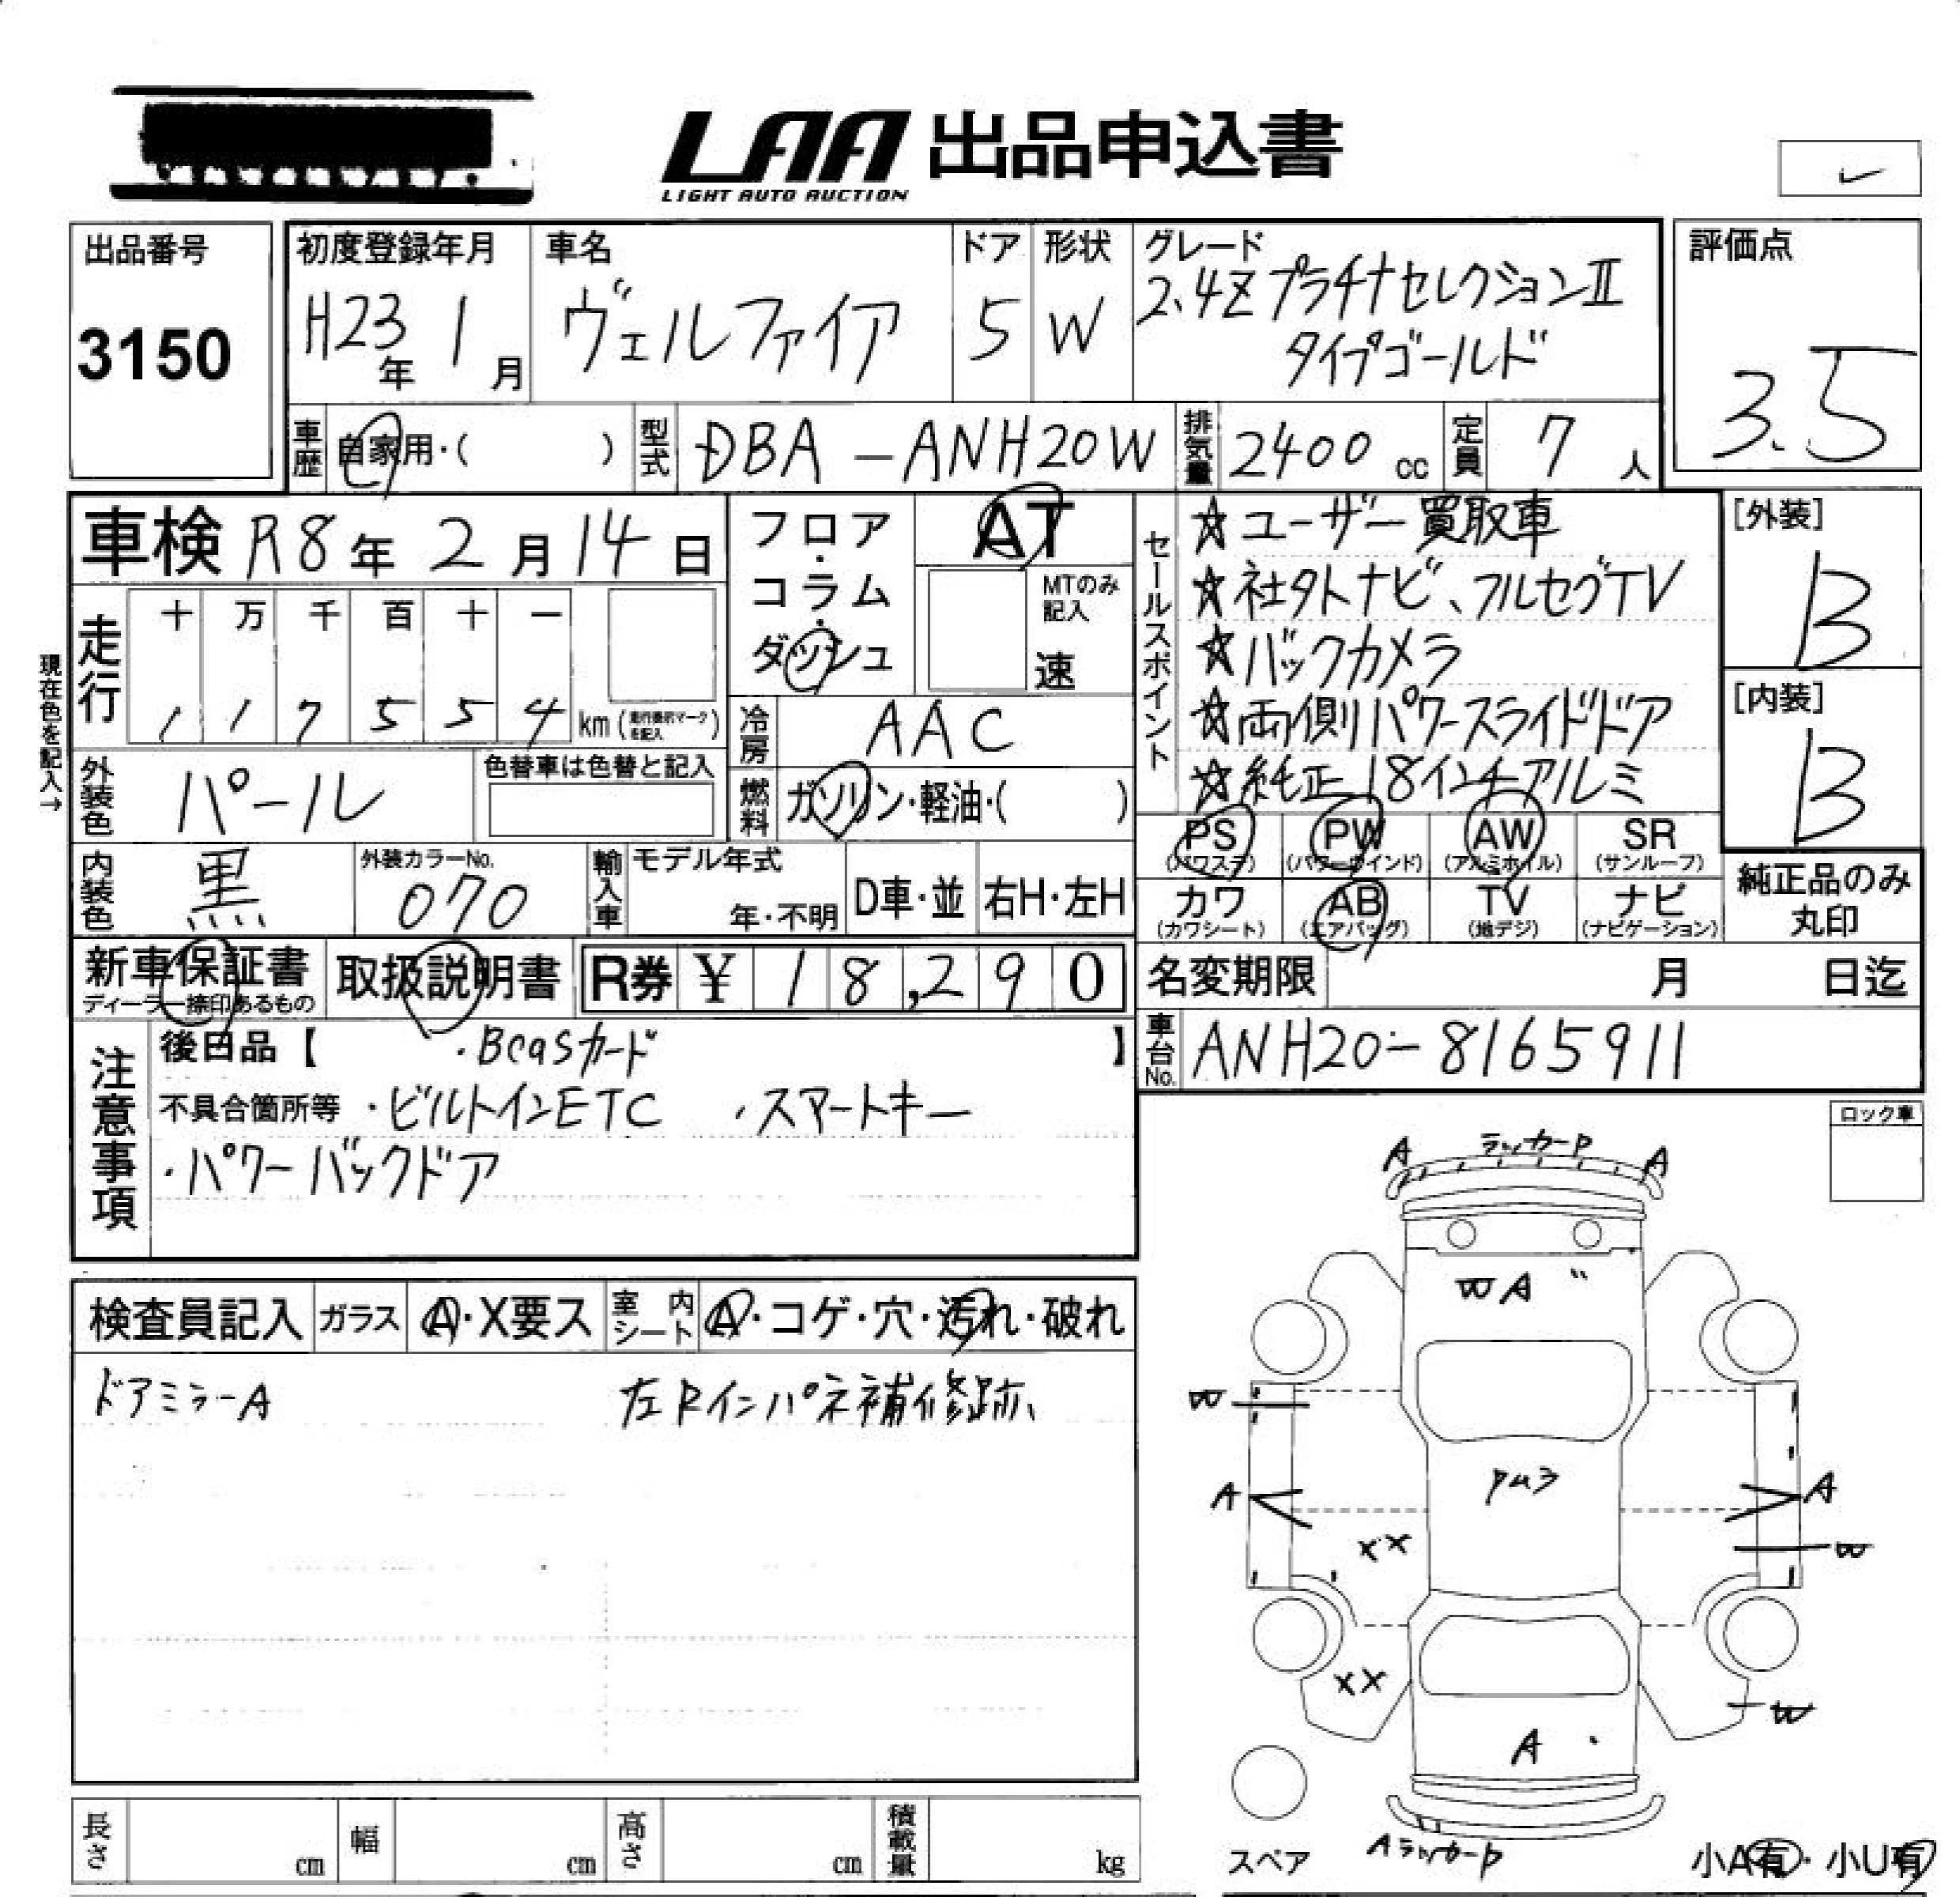 LAA 出品申込書
LIGHT AUTO AUCTION
出品番号
3150
初度登録年月
H23年 1月
車名
ヴェルファイア
ドア
5
形状
W
グレード
2.4Z プラチナセレクションⅡ
タイプゴールド
評価点
3.5
車歴 自家用・( )
型式 DBA-ANH20W
排気量 2400 cc
定員 7 人
車検 R8年 2月 14日
フロア・コラム・ダッシュ
AT
MTのみ記入
速
現在色を記入→
走行
十 万 千 百 十 一
1 1 7 5 5 4 km (走行表示マークを記入)
冷房 AAC
外装色 パール
色替車は色替と記入
燃料 ガソリン・軽油・( )
内装色 黒
外装カラーNo.
070
輸入車 モデル年式
年・不明
D車・並
右H・左H
セールスポイント
☆ユーザー買取車
☆社外ナビ、フルセグTV
☆バックカメラ
☆両側パワースライドドア
☆純正18インチアルミ
[外装]
B
[内装]
B
PS (パワステ)
PW (パワーウインド)
AW (アルミホイル)
SR (サンルーフ)
カワ (カワシート)
AB (エアバッグ)
TV (地デジ)
ナビ (ナビゲーション)
純正品のみ
丸印
新車保証書
ディーラー捺印あるもの
取扱説明書
R券 ¥ 18,290
名変期限 月 日迄
車台No. ANH20-8165911
注意事項
後日品【 ・Bcasカード 】
不具合箇所等 ・ビルトインETC ・スマートキー
・パワーバックドア
ロック車
検査員記入
ガラス A・X要ス
室内シート A・コゲ・穴・汚れ・破れ
ドアミラーA
左Rインパネ補修跡
A ラッカーP A
W A "
W
A
A
XX
W
XX
W
A
スペア
AラッカーP
小A有・小U有
長さ cm
幅 cm
高さ cm
積載量 kg